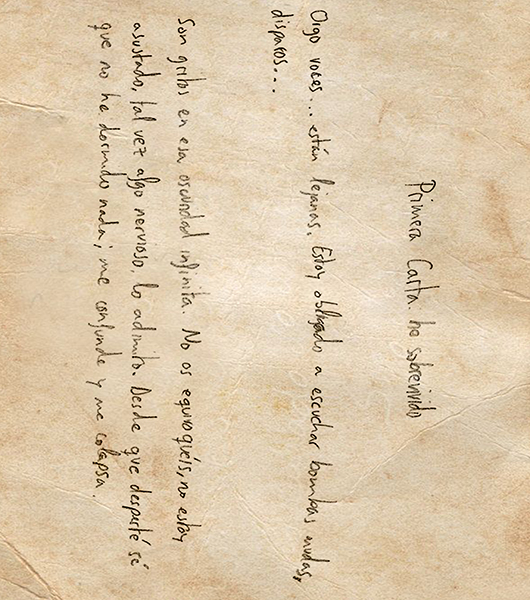 Primera Carta. he sobrevivido
Oigo voces... están lejanas. Estoy obligado a escuchar bombas mudas,
disparos...
Son gritos en esa oscuridad infinita. No os equivoquéis, no estoy
asustado, tal vez algo nervioso, lo admito. Desde que desperté sé
que no he dormido nada; me confunde y me colapsa.